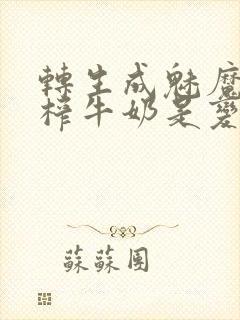 轉生成魅魔
榨牛奶是變
蘇蘇團